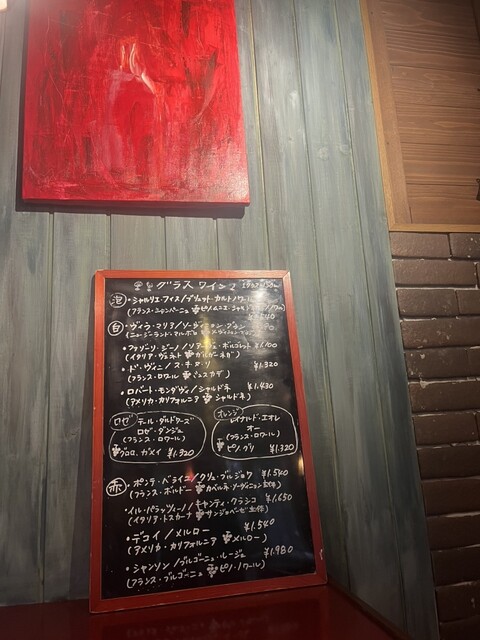 グラスワイン
泡 ・シャルリエ・フィス/ブリュット・カルトノワール
(フランス・シャンパーニュ ピノムニエ・シャルドネ・ピノノワール)
白 ・ヴィラ・マリア/ソーヴィニヨン・ブラン
(ニュージーランド・マルボロ ソーヴィニヨンブラン)
・ファゾーリ・ジーノ/ソアーヴェ・ボルゴレット ¥1,100
(イタリア・ヴェネト ガルガーネガ)
・ド・ヴィニ/ス・キ・ヌ・リ ¥1,320
(フランス・ロワール ミュスカデ)
・ロバート・モンダヴィ/シャルドネ ¥1,430
(アメリカ・カリフォルニア シャルドネ)
ロゼ テール・ダルドワーズ
ロゼ・ダンジュ
(フランス・ロワール)
グロロ、ガメイ ¥1,320
オレンジ レイナルド・エオレ
オー
(フランス・ロワール)
ピノ・グリ ¥1,320
赤 ・ポンテ・ベライユ/クリュ・ブルジョワ ¥1,540
(フランス・ボルドー カベルネ・ソーヴィニヨン主体)
・イル・パラッツィーノ/キャンティ・クラシコ ¥1,650
(イタリア・トスカーナ サンジョベーゼ主体)
・デコイ/メルロー ¥1,540
(アメリカ・カリフォルニア メルロー)
・シャンソン/ブルゴーニュ・ルージュ ¥1,980
(フランス・ブルゴーニュ ピノ・ノワール)